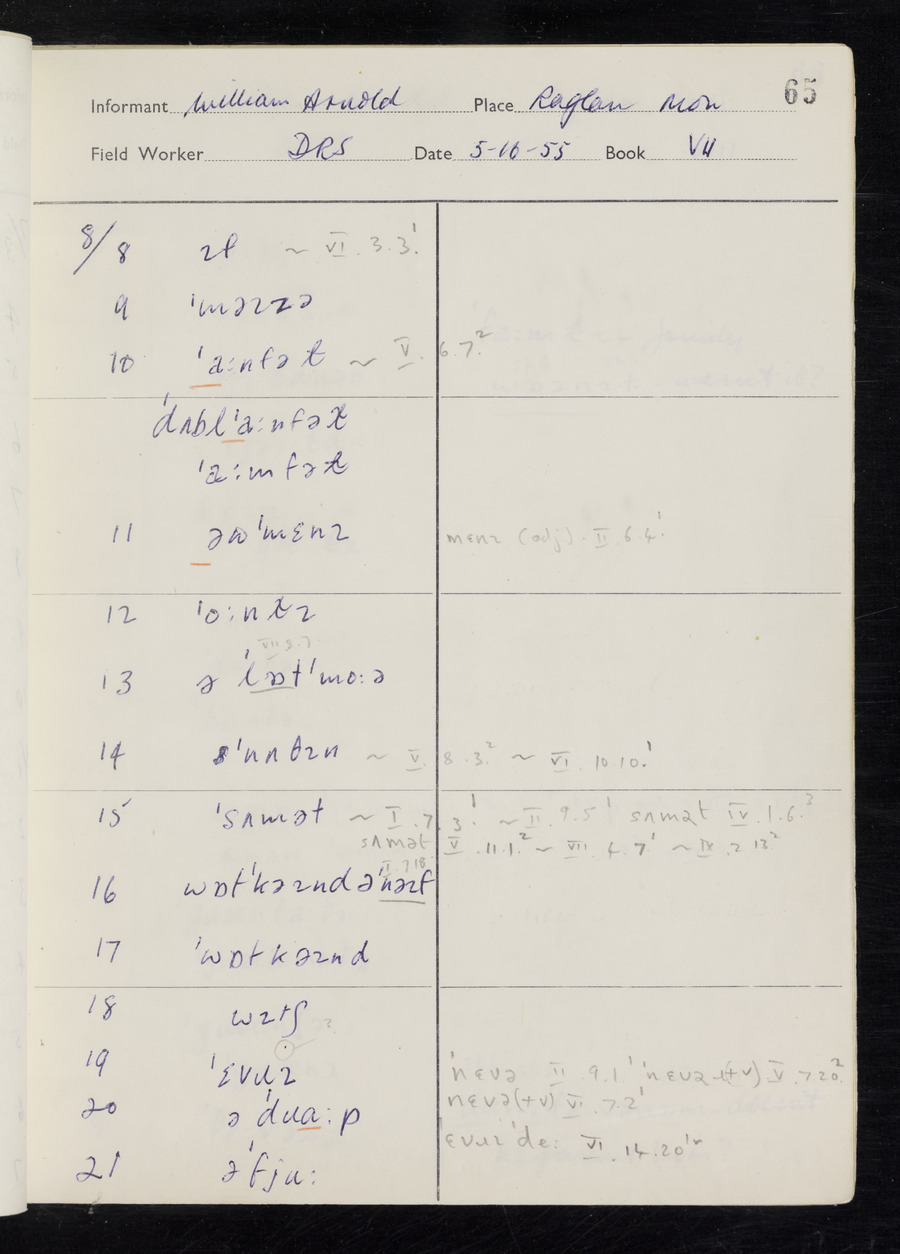 65
Informant William Arnold Place Raglan Mon
Field Worker DRS Date 5-16-55 Book VII
8/8 ɪf ~ VI.3.3¹
9 ˈməɪzə
10 ˈaːnfət ~ V.6.7²
ˈdʌblˈaːnfət
ˈaːmfət
11 əʊˈmɛnɪ mɛnɪ (adj). II.6.4¹
12 ˈoːntɪ
VII 8.7
13 ə ˈlɒtˈmoːə
14 ˈnʌθɪn ~ V.8.3² ~ VI.10.10¹
15 ˈsʌmət ~ I.7.3¹ ~ II.9.5¹ sʌmət IV.1.6³
sʌmət V.11.1² ~ VII.4.7¹ ~ IX.2.13²
II.7.18
16 wɒtˈkəɪndəˈnəɪf
17 ˈwɒtkəɪnd
18 wɪtʃ
19 ˈɛvɹɪ ˈnɛvə II.9.1¹ ˈnɛvəɹ(+v) V.7.20²
nɛvə(+v) VI.7.2¹
20 ə ˈdɹaːp
ɛvɹɪ ˈdeː VI.14.20
21 ə ˈfjuː